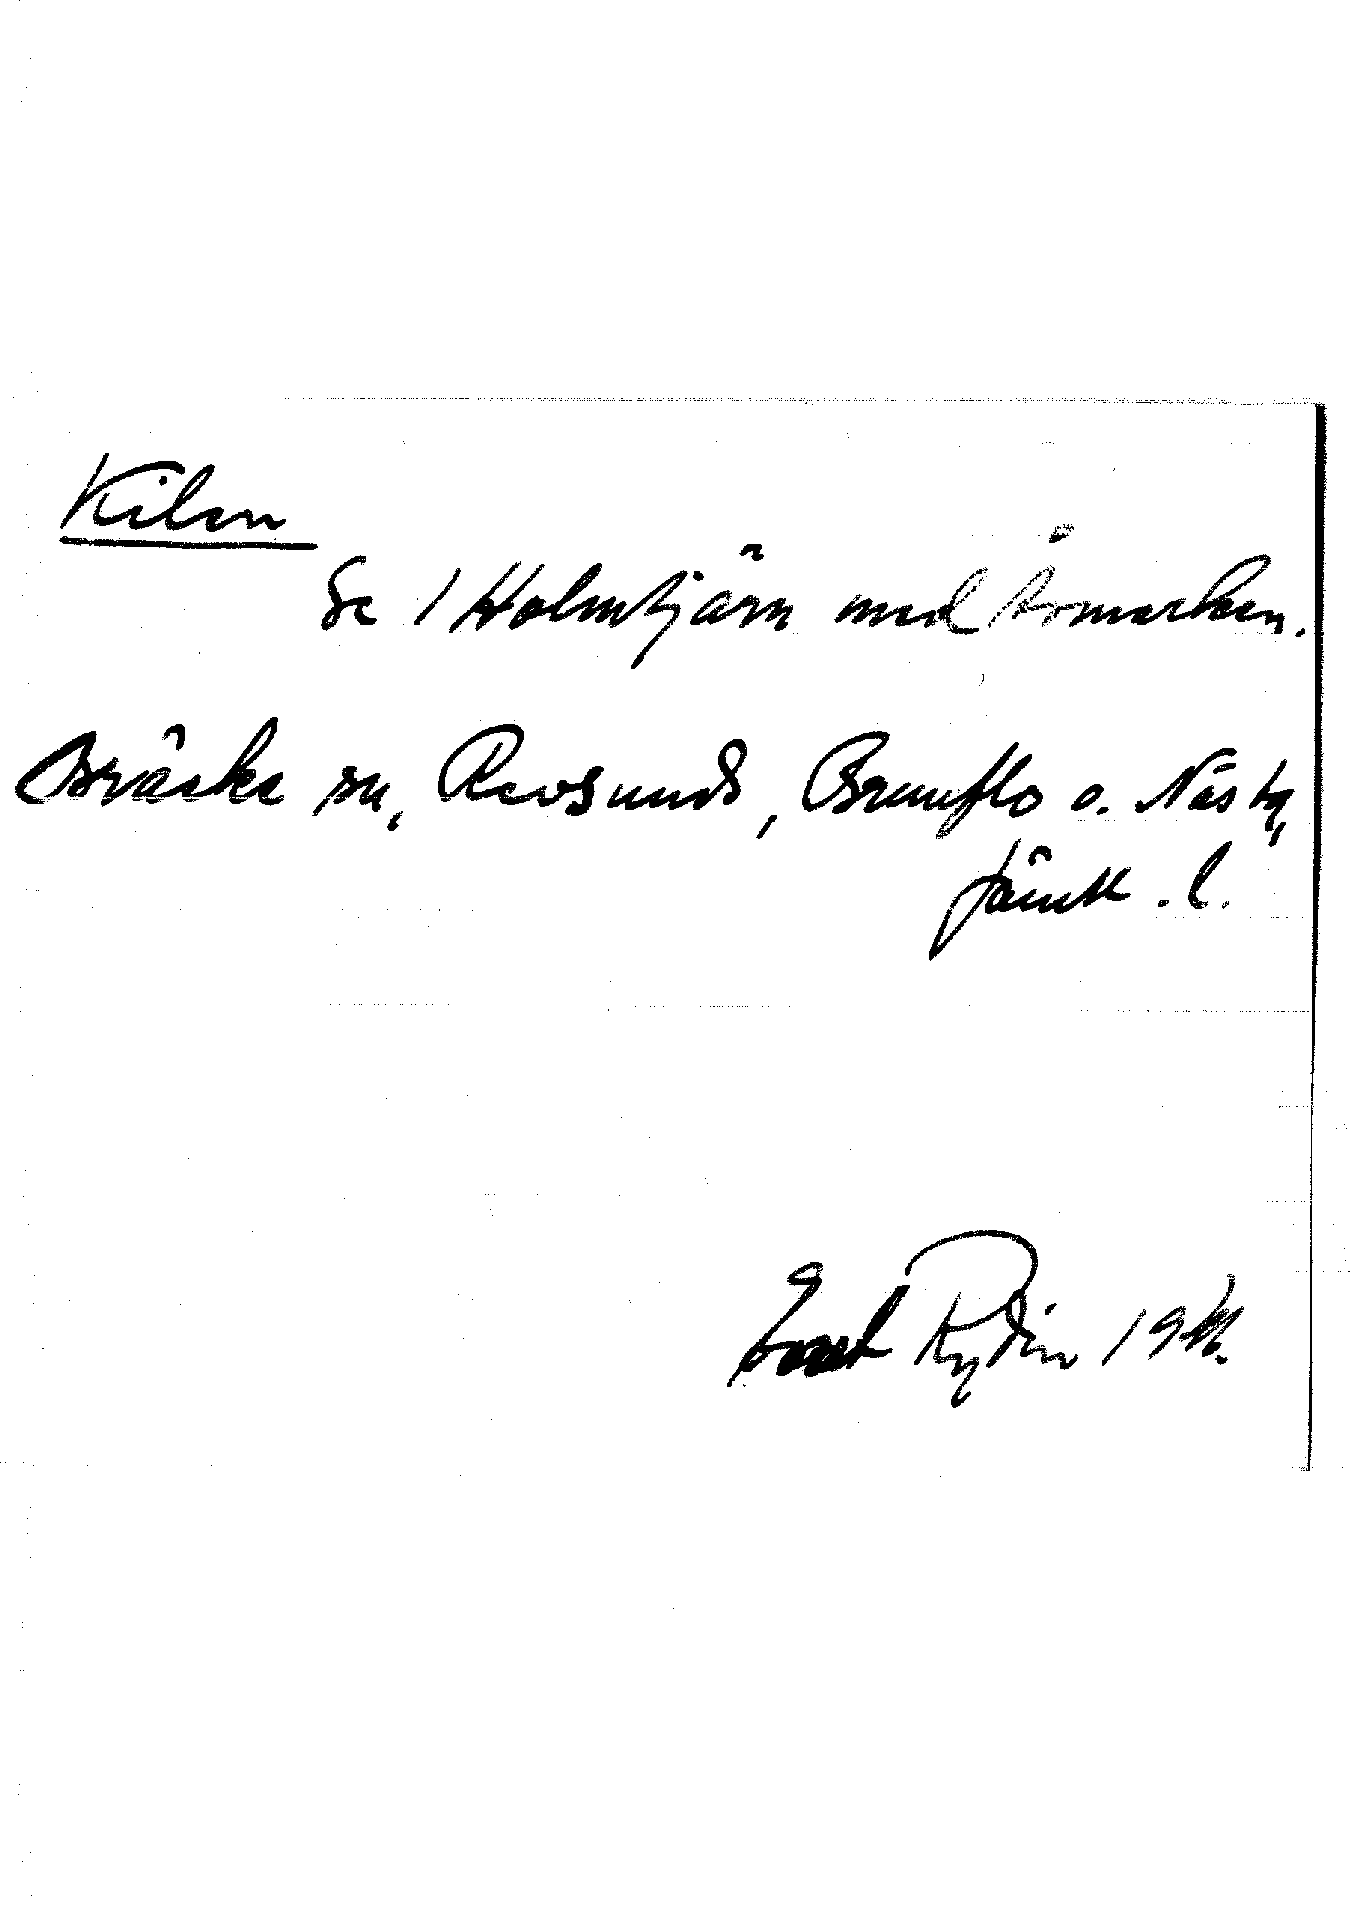 Kilen
Se 1 Holmtjärn med
Bräcke sn, Revsunds, Brunflo o. Näs tg,
Jämtl. l.
Rydin 19